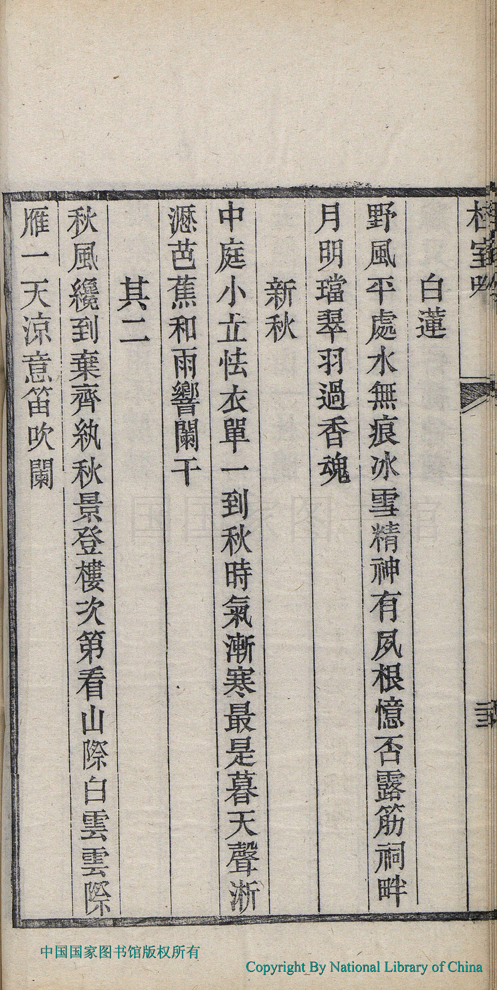 白蓮
野風平處水無痕冰雪精神有夙根憶否露筋祠畔
月明璫翠羽過香魂
新秋
中庭小立怯衣單一到秋時氣漸寒最是暮天聲淅
瀝芭蕉和雨響闌干
其二
秋風纔到棄齊紈秋景登樓次第看山際白雲雲際
雁一天涼意笛吹闌
中国国家图书馆版权所有
Copyright By National Library of China